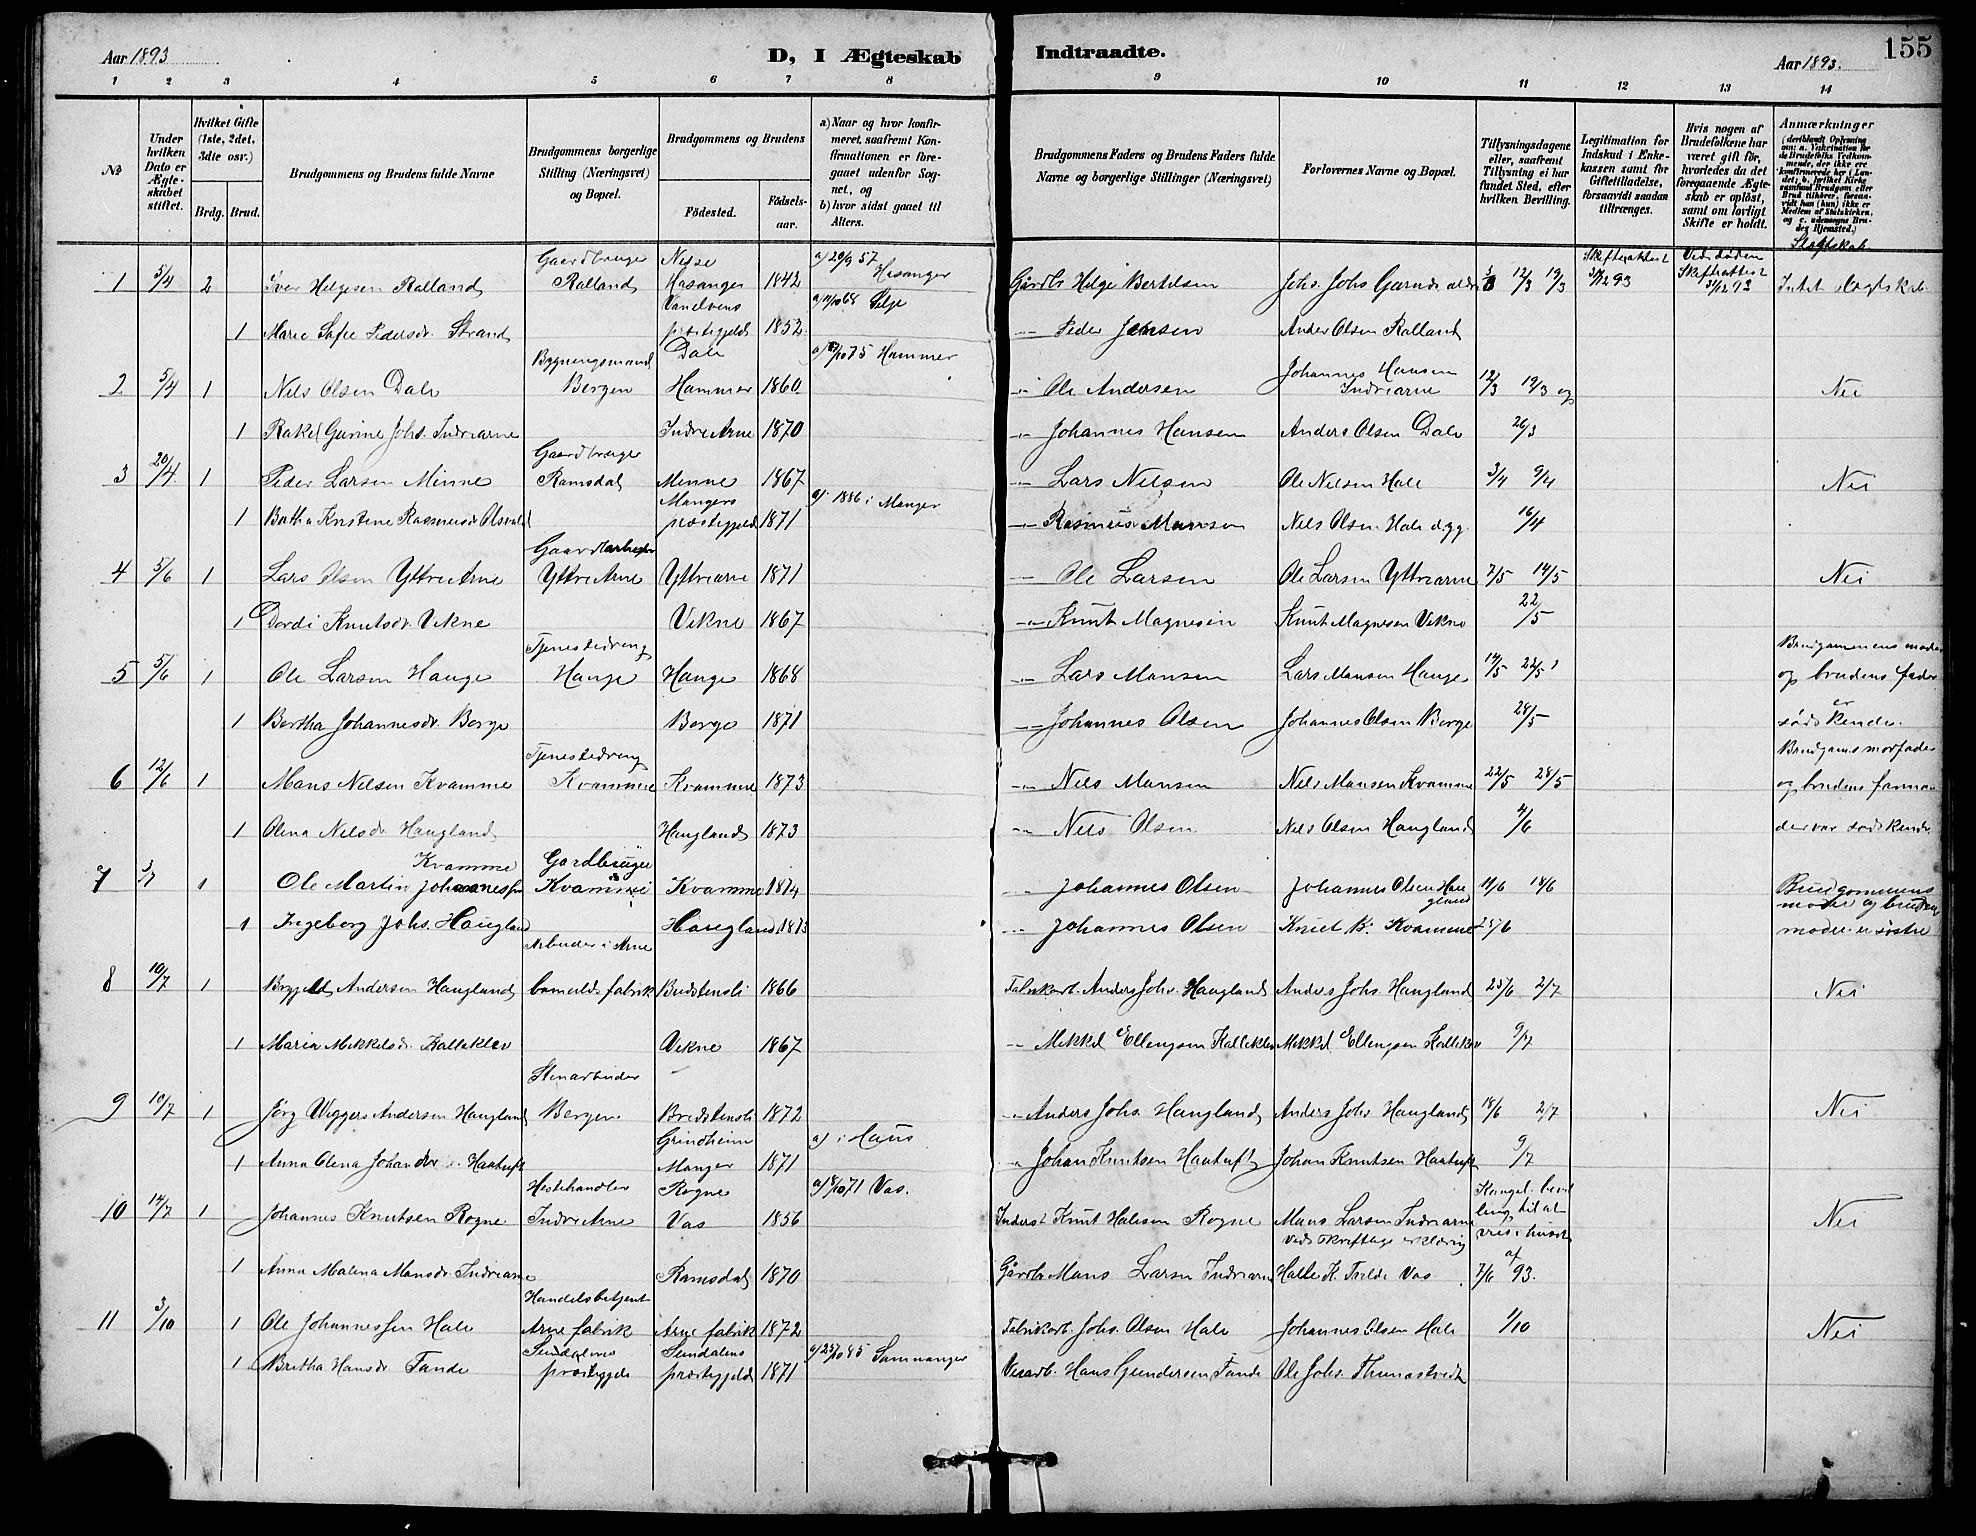 Aar 1893
D, I Ægteskab
Indtraadte.
Aar 1893.
155
1 2 3 4 5 6 7 8 9 10 11 12 13 14
№
Under hvilken Dato er Ægteskabet stiftet.
Hvilket Gifte (1ste, 2det, 3dte osv.)
Brdg. Brud.
Brudgommens og Brudens fulde Navne
Brudgommens borgerlige Stilling (Næringsvei) og Bopæl.
Brudgommens og Brudens
Fødested.
Fødselsaar.
a) Naar og hvor konfirmeret, saafremt Konfirmationen er foregaaet udenfor Sognet, og
b) hvor sidst gaaet til Alters.
Brudgommens Faders og Brudens Faders fulde Navne og borgerlige Stillinger (Næringsvei)
Forlovernes Navne og Bopæl.
Tillysningsdagene eller, saafremt Tillysning ei har fundet Sted, efter hvilken Bevilling.
Legitimation for Indskud i Enkekassen samt for Giftetilladelse, forsaavidt saadan tiltrænges.
Hvis nogen af Brudefolkene har været gift før, hvorledes da det foregaaende Ægteskab er opløst, samt om lovligt Skifte er holdt.
Anmærkninger
Slægtskab.
1 5/4 2 Iver Helgesen Ralland Gaardbruger Ralland Hasanger 1842 a) 20/9 57 Hosanger Gårdb. Helge Bertelsen Johs. Johs Garnes 12/3 19/3 Skifteattest 93 Ved døden Skifteattest 93 Intet slægtskab
1 Marie Sofie Pedersdr. Strand præstegjeld 1852 Selje Peder Jensen Anders Olsen Ralland
2 5/4 1 Nils Olsen Dale Bygningsmand Bergen Dale Hammer 1860 Hammer Ole Andersen Johannes Hansen Indrearne 12/3 19/3 og Nei
1 Rakel Gurine Johs. Indrearne Indre Arne 1870 Johannes Hansen Anders Olsen Dale 26/3
3 20/4 1 Peder Larsen Minne Gaardbruger Ramsdal Minne 1867 Lars Nilsen Ole Nilsen Hale 3/4 9/4 Nei
1 Bertha Kristine Rasmusdr Mangers præstegjeld 1871 a) 1886 i Manger Rasmus Monsen Nils Olsen Hale 16/4
4 5/6 1 Lars Olsen Yttre Arne Gaardarbeider Yttre Arne Yttrearne 1871 Ole Larsen Ole Larsen Yttrearne 7/5 14/5 Nei
1 Dordi Knutsdr. Vikne Vikne 1867 Knut Magnesen Knut Magnesen Vikne 22/5
5 5/6 1 Ole Larsen Hauge Tjenestedreng Hauge Hauge 1868 Lars Monsen Lars Monsen Hauge 14/5 22/5 Brudgommens moder og brudens fader
1 Bertha Johannesdr. Borge Borge 1871 Johannes Olsen Johannes Olsen Borge 28/5 er sødskende.
6 12/6 1 Mons Nilsen Kvamme Tjenestedreng Kvamme Kvamme 1873 Nils Monsen Nils Monsen Kvamme 22/5 28/5 Brudgoms morfader og brudens
1 Olena Nilsdr. Haugland Haugland 1873 Nils Olsen Nils Olsen Haugland 4/6 der var sødskende.
7 3/7 1 Ole Martin Johannesen Kvamme Gardbruger Kvamme Kvamme 1874 Johannes Olsen Johannes Olsen Haugland 11/6 18/6 Brudgommens moder og brudens
1 Ingeborg Johs. Haugland Haugland 1873 Johannes Olsen Knut K. Kvamme 25/6 moder er søstre
8 10/7 1 Brygild Andersen Haugland Arbeider i Arne bomulds fabrik Bredstensli 1866 Fabrikarb. Anders Johs. Haugland Anders Johs. Haugland 25/6 2/7 Nei
1 Maria Mikkelsdr. Kalleklev Vikne 1867 Mikkel Ellengsen Kalleklev Mikkel Ellengsen Kalleklev 9/7
9 10/7 1 Jørg Wiggers Andersen Haugland Stenarbeider Bergen Bredstensli 1872 Anders Johs. Haugland Anders Johs. Haugland 18/6 2/7 Nei
1 Anna Olena Johandr. Haatuft Grindheim Manger 1871 a) i Haus Johan Knutsen Haatuft Johan Knutsen Haatuft 9/7
10 14/7 1 Johannes Knutsen Rogne Hestehandler Indre Arne Rogne Vos 1856 71 Vos. Inderst Knut Halsen Rogne Mons Larsen Indrearne veds skriftlige erklæring Kongel. bevilling til at vies i huset
1 Anna Malena Monsdr. Indrearne Ramsdal 1870 Gårdb. Mons Larsen Indrearne K. Vos af 7/6 93. Nei
11 3/10 1 Ole Johannessen Hale Handelsbetjent Arne fabrik Arne fabrik 1872 Fabrikarb. Johs. Olsen Hale Johannes Olsen Hale 1/10 Nei
1 Bretha Hansdr Tande præstegjeld præstegjeld 1871 85 Samnanger Hans Gundersen Tande Ole Johs.